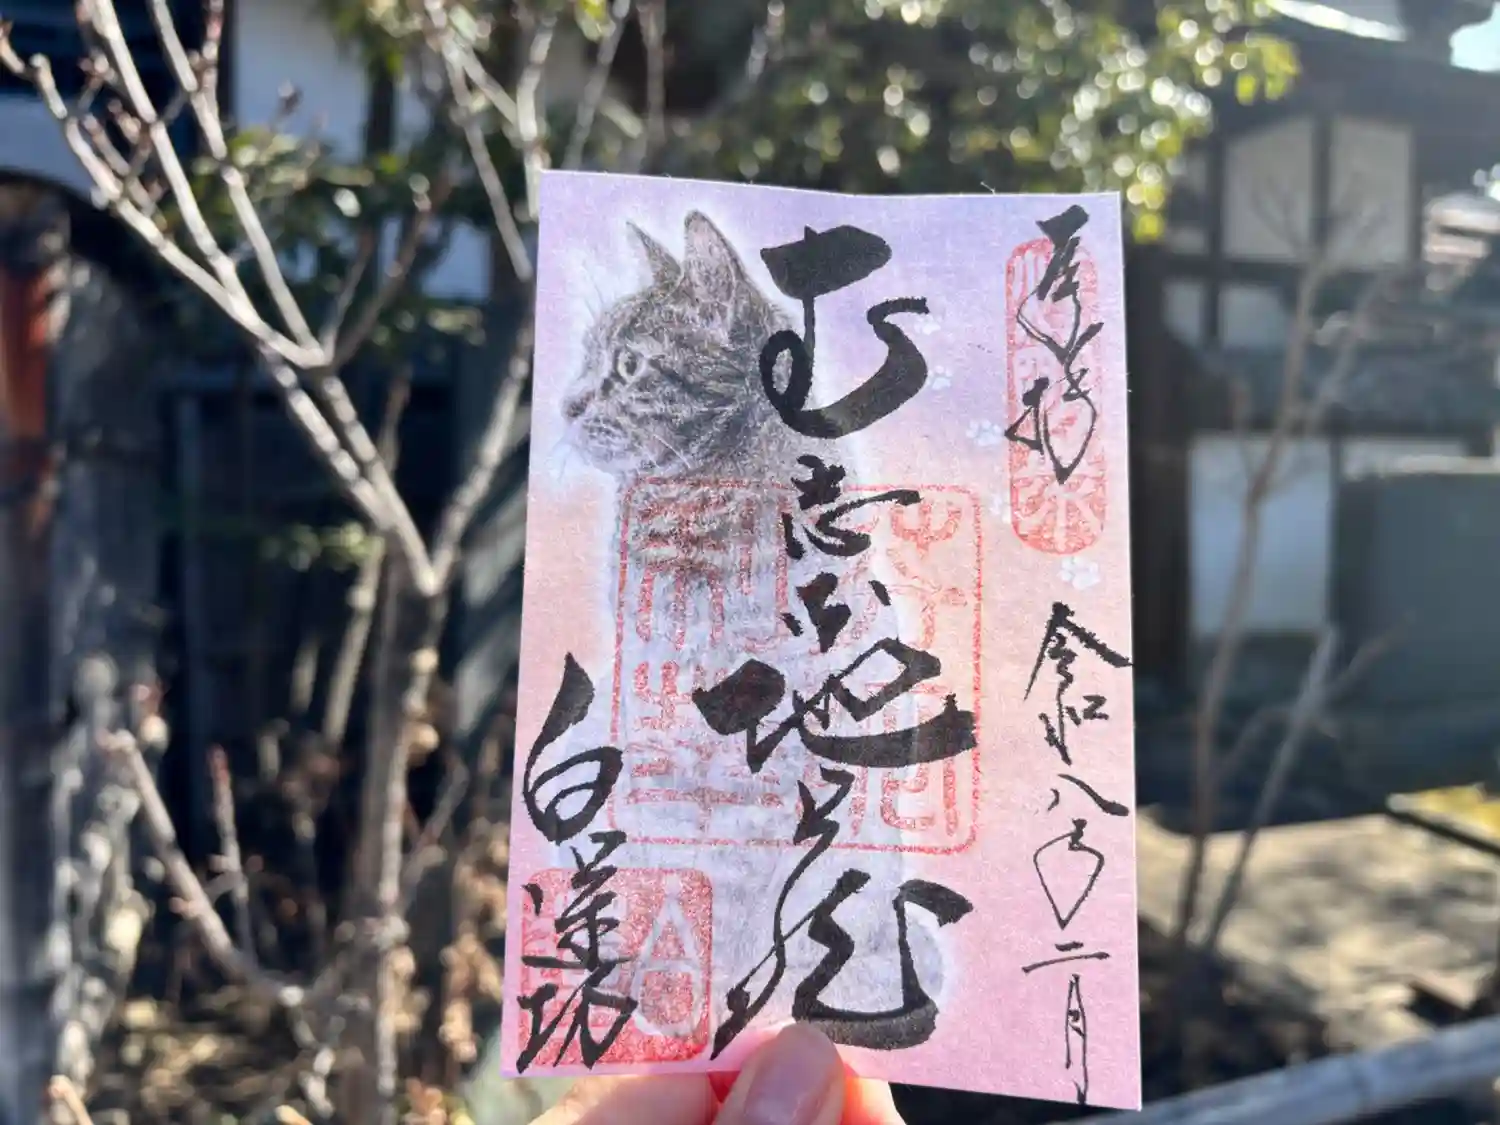 奉拝 令和八年二月
む志な地蔵
白蓮坊